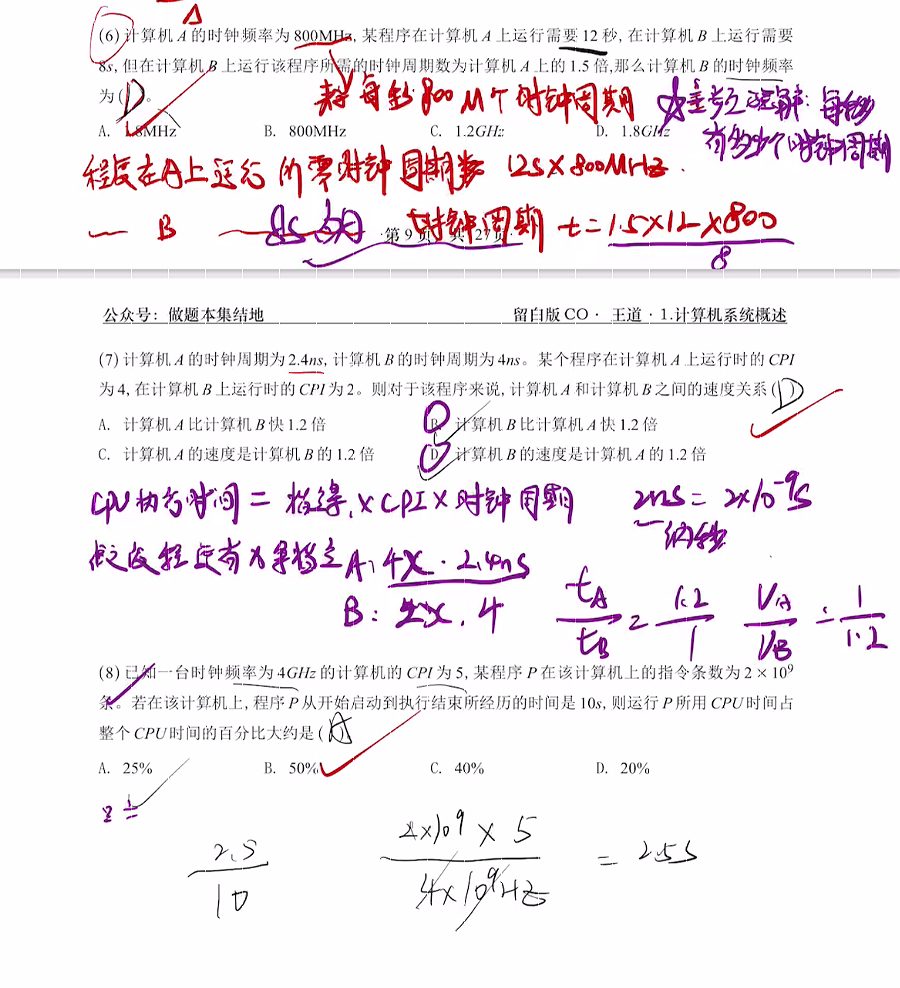 (6) 计算机 A 的时钟频率为 800MHz, 某程序在计算机 A 上运行需要 12 秒, 在计算机 B 上运行需要
8s, 但在计算机 B 上运行该程序所需的时钟周期数为计算机 A 上的 1.5 倍,那么计算机 B 的时钟频率
为( D )。
表示 每秒 800M个时钟周期
理解: 每秒
有多少个时钟周期
A. 1.8MHz B. 800MHz C. 1.2GHz D. 1.8GHz
程序在A上运行 的需时钟周期数 12s×800MHz.
B 8s 时钟周期 t=1.5×12×800
8
·第 9 页 共 27页·
公众号: 做题本集结地 留白版 CO · 王道 · 1.计算机系统概述
(7) 计算机 A 的时钟周期为 2.4ns, 计算机 B 的时钟周期为 4ns。某个程序在计算机 A 上运行时的 CPI
为 4, 在计算机 B 上运行时的 CPI 为 2。则对于该程序来说, 计算机 A 和计算机 B 之间的速度关系 ( D )
A. 计算机 A 比计算机 B 快 1.2 倍 B. 计算机 B 比计算机 A 快 1.2 倍
C. 计算机 A 的速度是计算机 B 的 1.2 倍 D. 计算机 B 的速度是计算机 A 的 1.2 倍
CPU执行时间 = 指令 × CPI × 时钟周期 2ns = 2×10⁻⁹s
纳秒
假设程序有 条指令 A: 4x · 2.4ns
B: 2x . 4
tA/tB = 1.2/1 VA/VB = 1/1.2
(8) 已知一台时钟频率为 4GHz 的计算机的 CPI 为 5, 某程序 P 在该计算机上的指令条数为 2 × 10⁹
条。若在该计算机上, 程序 P 从开始启动到执行结束所经历的时间是 10s, 则运行 P 所用 CPU 时间占
整个 CPU 时间的百分比大约是 ( A )
A. 25% B. 50% C. 40% D. 20%
2.5/10 2×10⁹ × 5/4×10⁹Hz = 2.5s